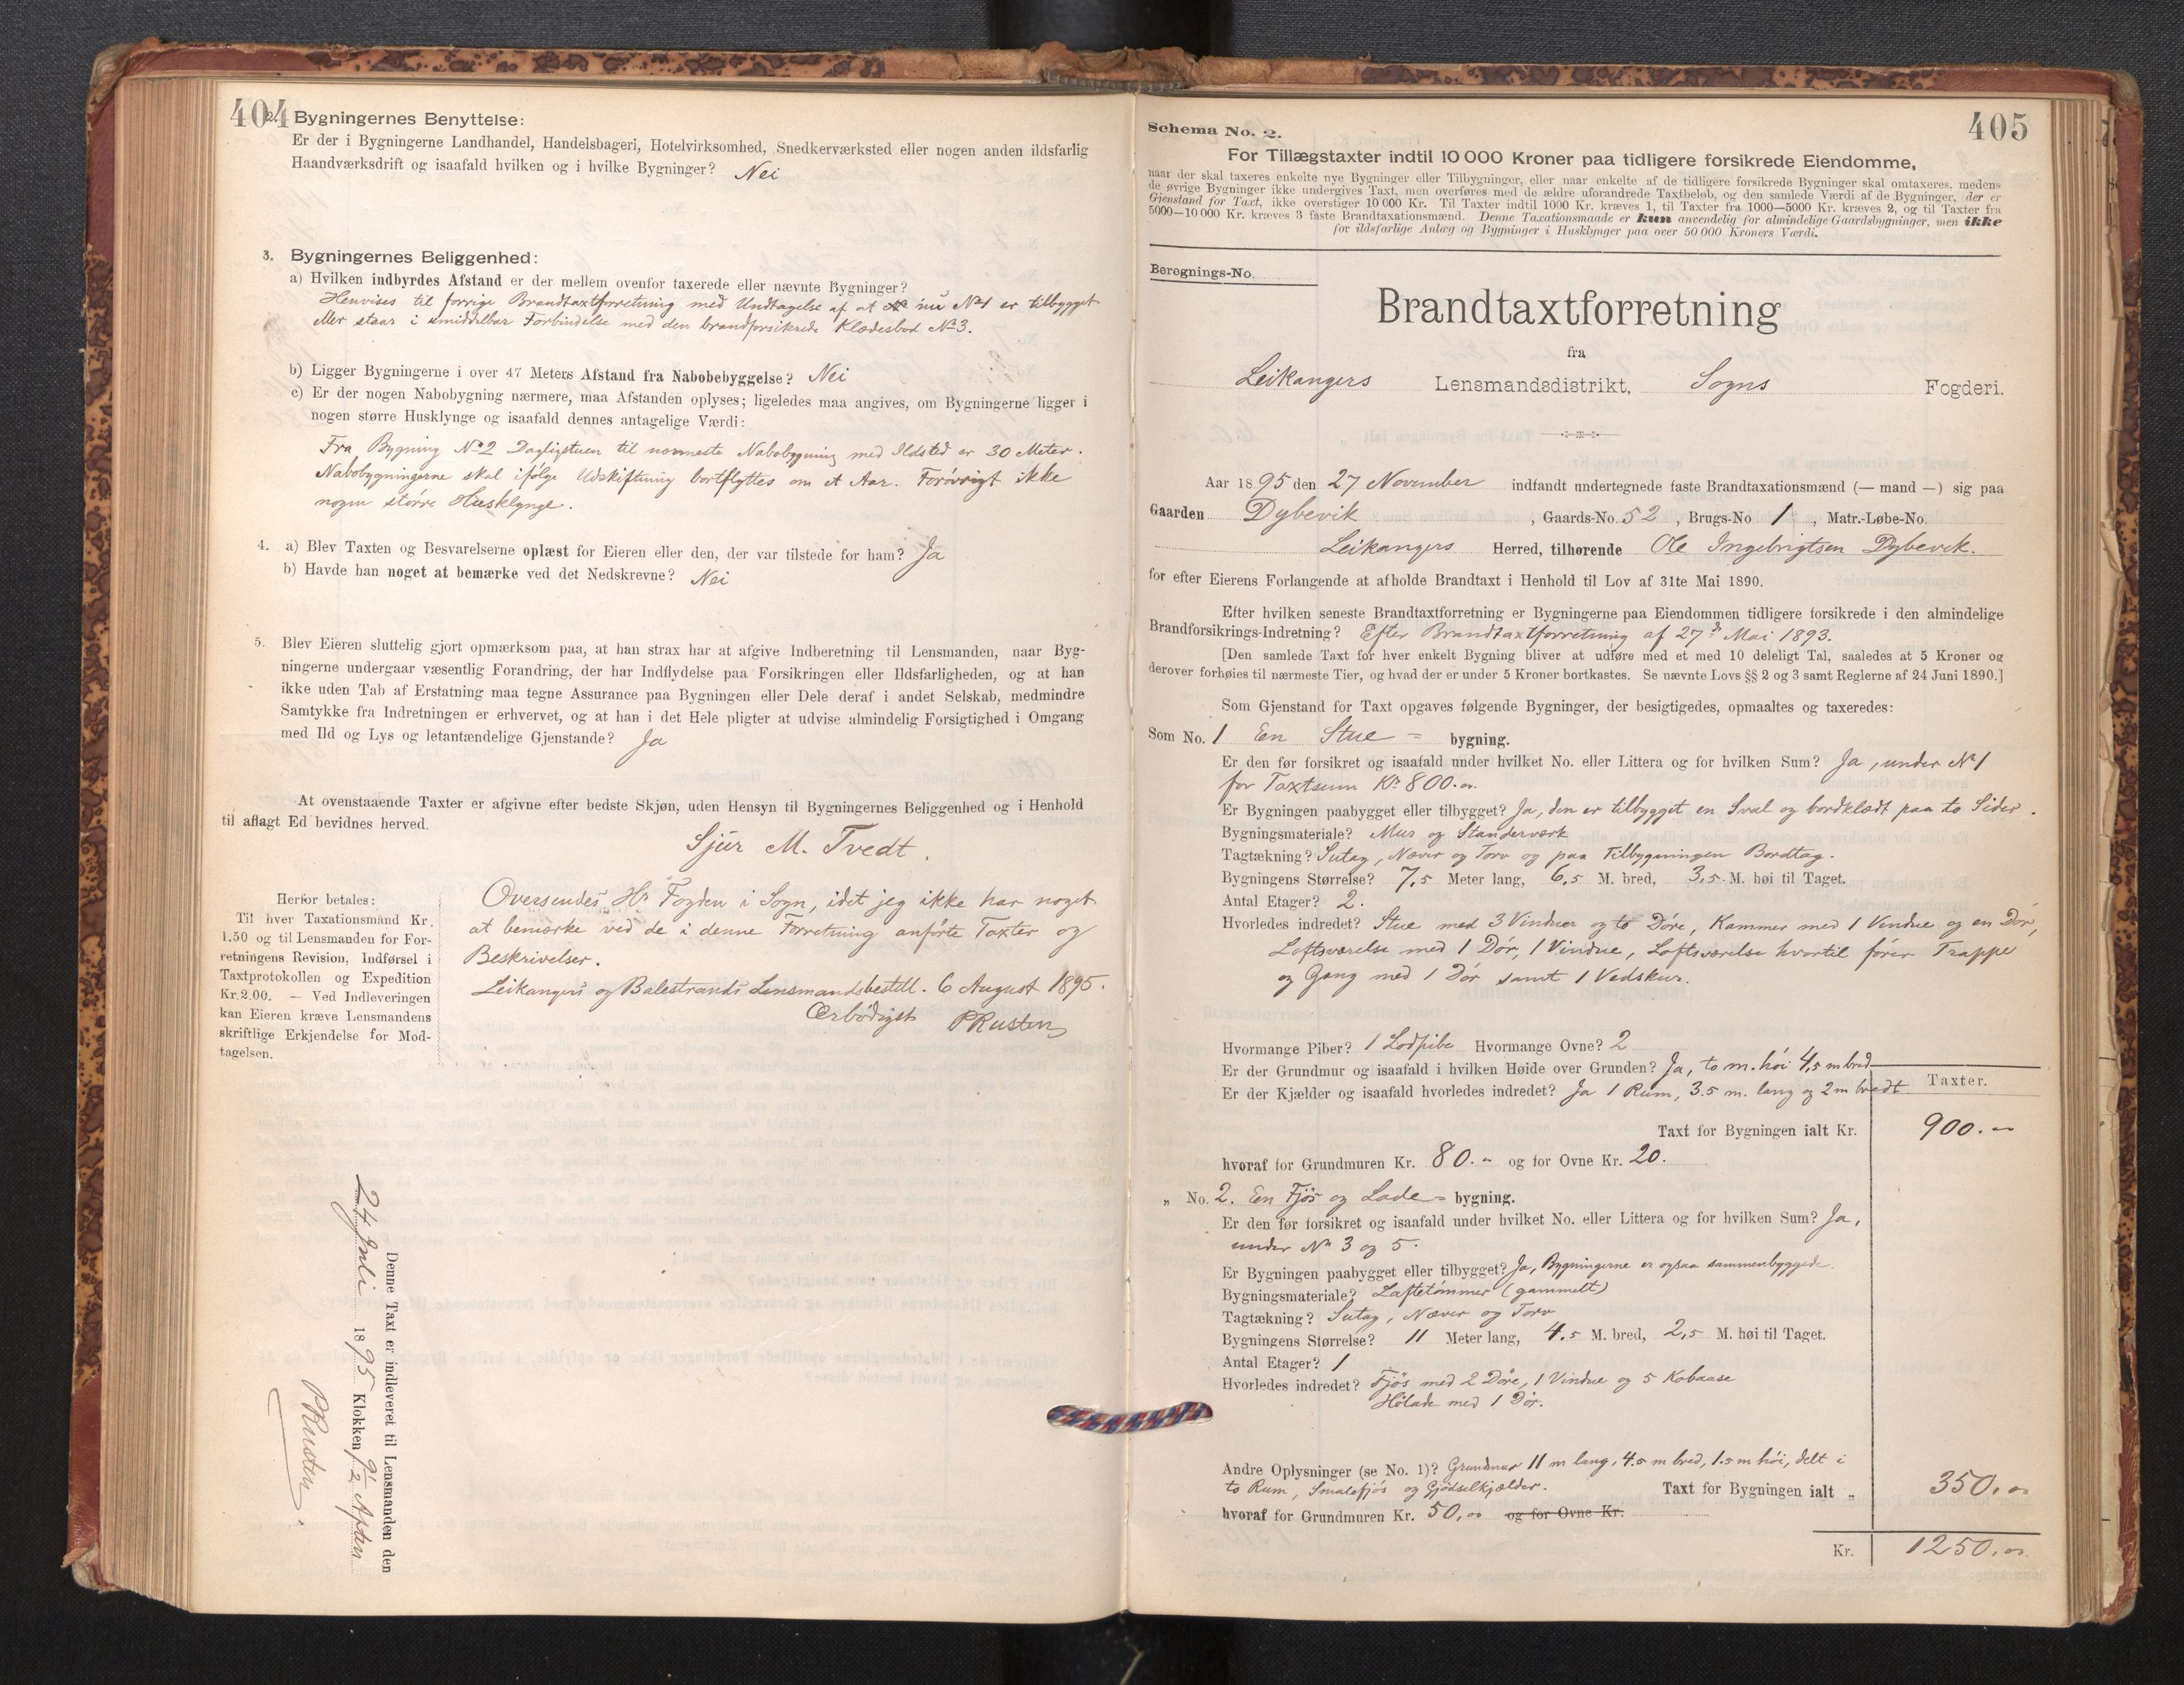 404
2. Bygningernes Benyttelse:
Er der i Bygningerne Landhandel, Handelsbageri, Hotelvirksomhed, Snedkerværksted eller nogen anden ildsfarlig
Haandværksdrift og isaafald hvilken og i hvilke Bygninger? Nei
3. Bygningernes Beliggenhed:
a) Hvilken indbyrdes Afstand er der mellem ovenfor taxerede eller nævnte Bygninger?
Henvises til forrige Brandtaxtforretning med Undtagelse af at nu No 1 er tilbygget
eller staar i umiddelbar Forbindelse med den brandforsikrede Klædesbod No 3.
b) Ligger Bygningerne i over 47 Meters Afstand fra Nabobebyggelse? Nei
c) Er der nogen Nabobygning nærmere, maa Afstanden oplyses; ligeledes maa angives, om Bygningerne ligger i
nogen større Husklynge og isaafald dennes antagelige Værdi:
Fra Bygning No 2 Dagligstuen til nærmeste Nabobygning med Ildsted er 30 Meter.
Nabobygningerne skal ifølge Udskiftning bortflyttes om et Aar. Forøvrigt ikke
nogen større Husklynge.
4. a) Blev Taxten og Besvarelserne oplæst for Eieren eller den, der var tilstede for ham? Ja
b) Havde han noget at bemærke ved det Nedskrevne? Nei
5. Blev Eieren sluttelig gjort opmærksom paa, at han strax har at afgive Indberetning til Lensmanden, naar Byg-
ningerne undergaar væsentlig Forandring, der har Indflydelse paa Forsikringen eller Ildsfarligheden, og at han
ikke uden Tab af Erstatning maa tegne Assurance paa Bygningen eller Dele deraf i andet Selskab, medmindre
Samtykke fra Indretningen er erhvervet, og at han i det Hele pligter at udvise almindelig Forsigtighed i Omgang
med Ild og Lys og letantændelige Gjenstande? Ja
At ovenstaaende Taxter er afgivne efter bedste Skjøn, uden Hensyn til Bygningernes Beliggenhed og i Henhold
til aflagt Ed bevidnes herved.
Sjur M. Tvedt.
Herfor betales:
Til hver Taxationsmand Kr.
1.50 og til Lensmanden for For-
retningens Revision, Indførsel i
Taxtprotokollen og Expedition
Kr. 2.00. — Ved Indleveringen
kan Eieren kræve Lensmandens
skriftlige Erkjendelse for Mod-
tagelsen.
Oversendes Hr Fogden i Sogn, idet jeg ikke har noget
at bemærke ved de i denne Forretning anførte Taxter og
Beskrivelser.
Leikangers og Balestrands Lensmandsbestill. 6 August 1895.
Ærbødigst PRusten
Denne Taxt er indleveret til Lensmanden den
24 Juli 1895 Klokken 9½ Aften
PRusten.
405
Schema No. 2.
For Tillægstaxter indtil 10 000 Kroner paa tidligere forsikrede Eiendomme,
naar der skal taxeres enkelte nye Bygninger eller Tilbygninger, eller naar enkelte af de tidligere forsikrede Bygninger skal omtaxeres, medens
de øvrige Bygninger ikke undergives Taxt, men overføres med de ældre uforandrede Taxtbeløb, og den samlede Værdi af de Bygninger, der er
Gjenstand for Taxt, ikke overstiger 10 000 Kr. Til Taxter indtil 1000 Kr. kræves 1, til Taxter fra 1000—5000 Kr. kræves 2, og til Taxter fra
5000—10 000 Kr. kræves 3 faste Brandtaxationsmænd. Denne Taxationsmaade er kun anvendelig for almindelige Gaardsbygninger, men ikke
for ildsfarlige Anlæg og Bygninger i Husklynger paa over 50 000 Kroners Værdi.
Beregnings-No.
Brandtaxtforretning
fra
Leikangers Lensmandsdistrikt, Sogns Fogderi.
Aar 1895 den 27 November indfandt undertegnede faste Brandtaxationsmænd (— mand —) sig paa
Gaarden Dybevik, Gaards-No. 52, Brugs-No 1, Matr.-Løbe-No.
Leikangers Herred, tilhørende Ole Ingebrigtsen Dybevik.
for efter Eierens Forlangende at afholde Brandtaxt i Henhold til Lov af 31te Mai 1890.
Efter hvilken seneste Brandtaxtforretning er Bygningerne paa Eiendommen tidligere forsikrede i den almindelige
Brandforsikrings-Indretning? Efter Brandtaxtforretning af 27d Mai 1893.
[Den samlede Taxt for hver enkelt Bygning bliver at udføre med et med 10 deleligt Tal, saaledes at 5 Kroner og
derover forhøies til nærmeste Tier, og hvad der er under 5 Kroner bortkastes. Se nævnte Lovs §§ 2 og 3 samt Reglerne af 24 Juni 1890.]
Som Gjenstand for Taxt opgaves følgende Bygninger, der besigtigedes, opmaaltes og taxeredes:
Som No. 1 En Stue = bygning.
Er den før forsikret og isaafald under hvilket No. eller Littera og for hvilken Sum? Ja, under No 1
for Taxtsum Kr 800.00
Er Bygningen paabygget eller tilbygget? Ja, den er tilbygget en Sval og bordklædt paa to Sider.
Bygningsmateriale? Mur og Standerværk
Tagtækning? Sutag, Næver og Torv og paa Tilbygningen Bordtag.
Bygningens Størrelse? 7,5 Meter lang, 6,5 M. bred, 3,5 M. høi til Taget.
Antal Etager? 2.
Hvorledes indredet? Stue med 3 Vinduer og to Døre, Kammer med 1 Vindue og en Dør,
Loftsværelse med 1 Dør, 1 Vindue, Loftsværelse hvortil fører Trappe
og Gang med 1 Dør samt 1 Vedskur.
Hvormange Piber? 1 Lodpibe Hvormange Ovne? 2
Er der Grundmur og isaafald i hvilken Høide over Grunden? Ja, to m. høi 4,5 m bred
Er der Kjælder og isaafald hvorledes indredet? Ja 1 Rum, 3.5 m. lang og 2 m bredt
Taxter.
Taxt for Bygningen ialt Kr. 900.—
hvoraf for Grundmuren Kr. 80.— og for Ovne Kr. 20.
„ No. 2. En Fjøs og Lade = bygning.
Er den før forsikret og isaafald under hvilket No. eller Littera og for hvilken Sum? Ja,
under No 3 og 5.
Er Bygningen paabygget eller tilbygget? Ja, Bygningerne er ogsaa sammenbyggede.
Bygningsmateriale? Laftetømmer (gammelt)
Tagtækning? Sutag, Næver og Torv
Bygningens Størrelse? 11 Meter lang, 4.5 M. bred, 2,5 M. høi til Taget.
Antal Etager? 1
Hvorledes indredet? Fjøs med 2 Døre, 1 Vindue og 5 Kobaase
Hølade med 1 Dør.
Andre Oplysninger (se No. 1)? Grundmur 11 m lang, 4.5 m bred, 1.5 m høi, delt i
to Rum, Smalefjøs og Gjødselkjælder. Taxt for Bygningen ialt „ 350.00
hvoraf for Grundmuren Kr. 50,00 og for Ovne Kr.
Kr. 1250.00